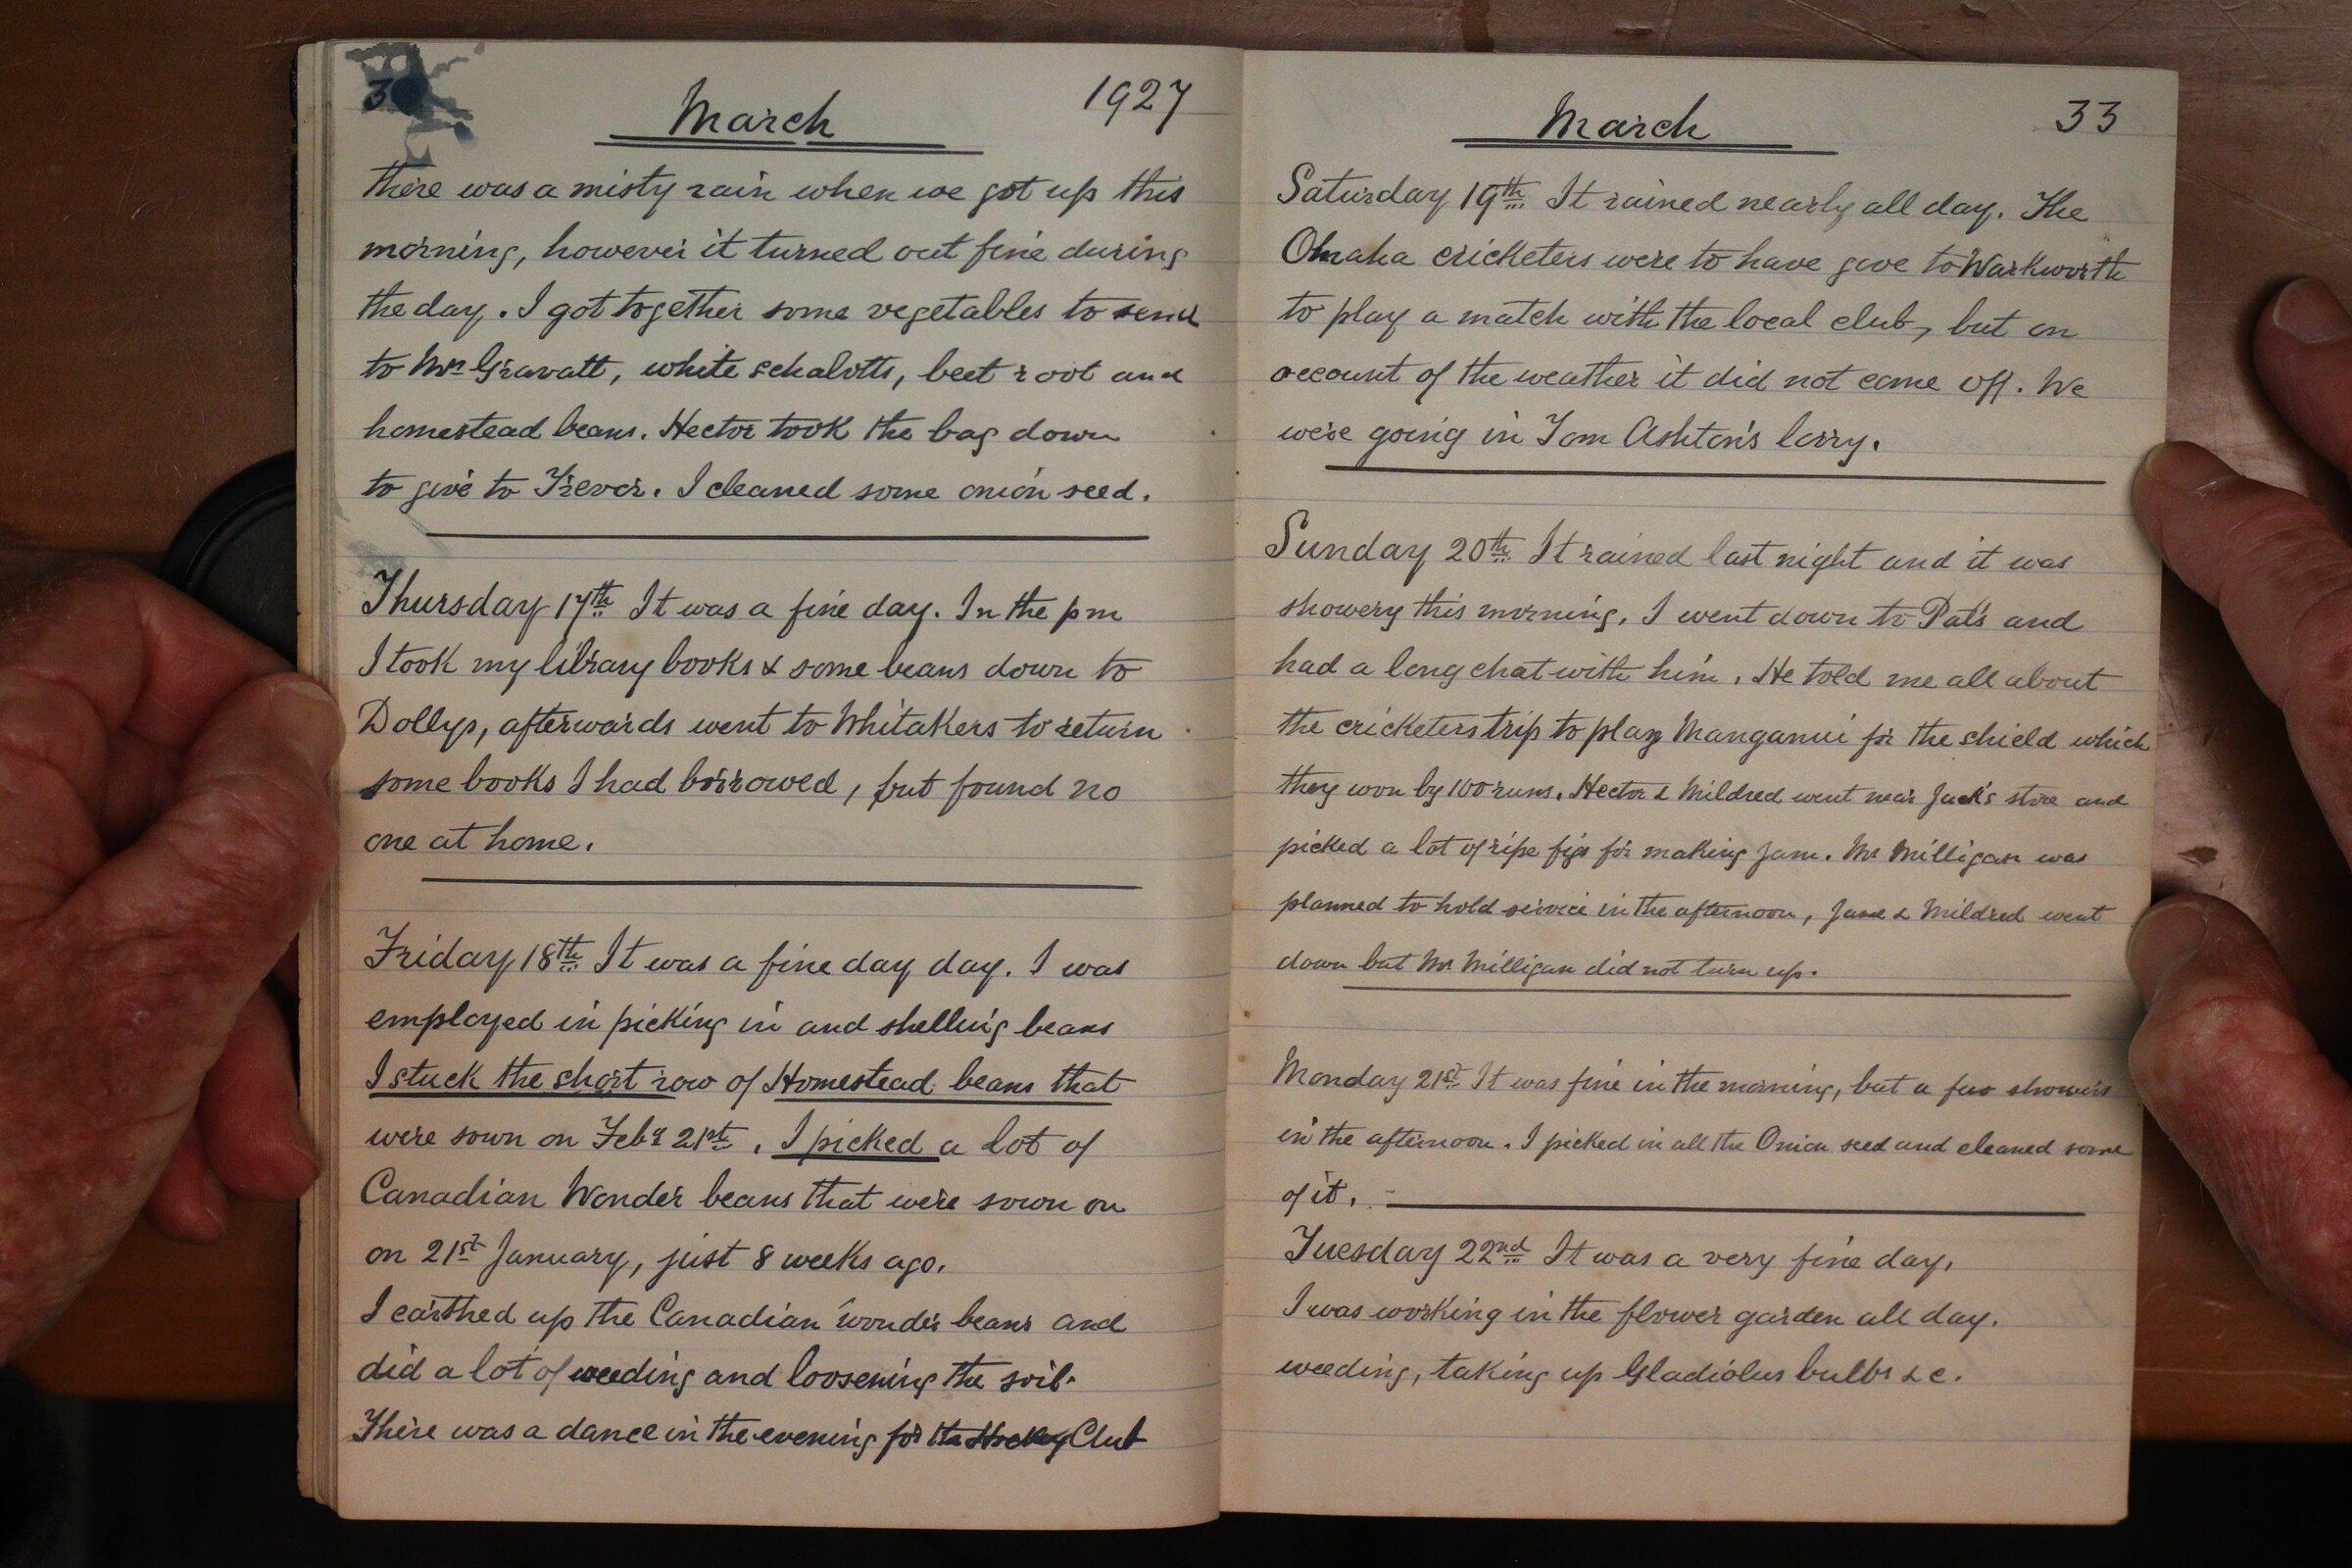 3
March
1927
there was a misty rain when we got up this
morning, however it turned out fine during
the day. I got together some vegetables to send
to Mrs Gravatt, white schalotts, beet root and
homestead beans. Hector took the bag down
to give to Trevor. I cleaned some onion seed.
Thursday 17th It was a fine day. In the pm
I took my library books & some beans down to
Dollys, afterwards went to Whitakers to return
some books I had borrowed, but found no
one at home.
Friday 18th It was a fine day day. I was
employed in picking in and shelling beans
I stuck the short row of Homestead beans that
were sown on Feby 21st. I picked a lot of
Canadian Wonder beans that were sown on
on 21st January, just 8 weeks ago.
I earthed up the Canadian wonder beans and
did a lot of weeding and loosening the soil.
There was a dance in the evening for the Hockey Club
March
33
Saturday 19th It rained nearly all day. The
Omaha cricketers were to have gove to Warkworth
to play a match with the local club, but on
account of the weather it did not come off. We
were going in Tom Ashton's lorry.
Sunday 20th It rained last night and it was
showery this morning. I went down to Pat's and
had a long chat with him. He told me all about
the cricketers trip to play Manganui for the shield which
they won by 100 runs. Hector & Mildred went near Jack's store and
picked a lot of ripe figs for making Jam. Mr Milligan was
planned to hold service in the afternoon, Jane & Mildred went
down but Mr Milligan did not turn up.
Monday 21st It was fine in the morning, but a few showers
in the afternoon. I picked in all the Onion seed and cleaned some
of it.
Tuesday 22nd It was a very fine day,
I was working in the flower garden all day.
weeding, taking up Gladiolus bulbs &c.